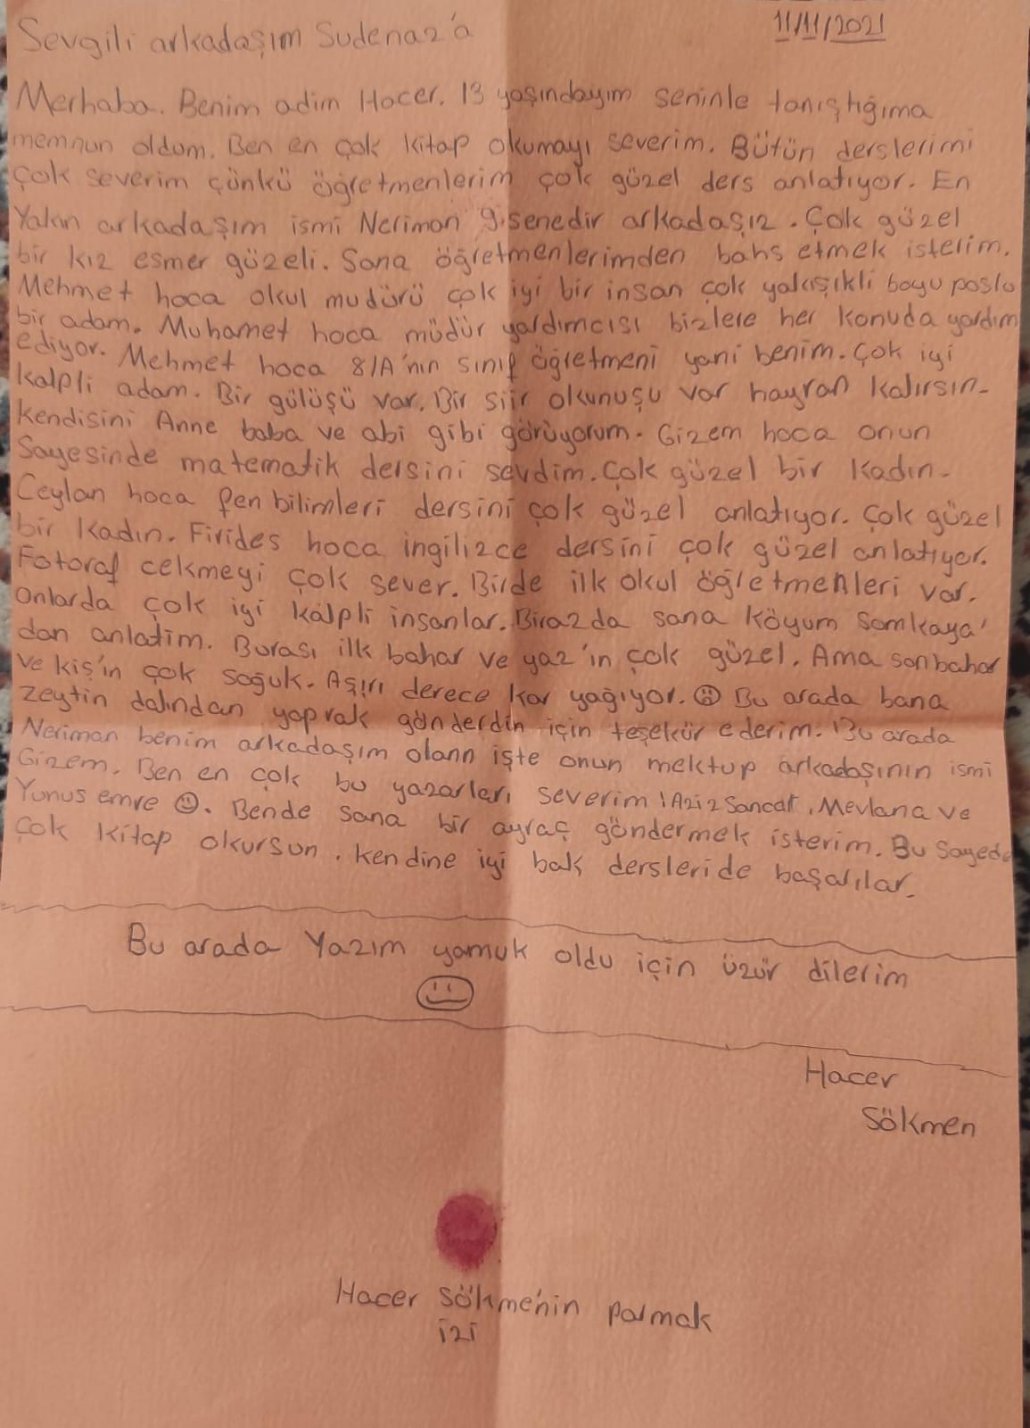 Sevgili arkadaşım Sudenaz'a
11/11/2021
Merhaba. Benim adim Hacer. 13 yaşındayım seninle tanıştığıma
memnun oldum. Ben en çok kitap okumayı severim. Bütün derslerimi
çok severim çünkü öğretmenlerim çok güzel ders anlatıyor. En
Yakın arkadaşım ismi Neriman 9 senedir arkadaşız. Çok güzel
bir kız esmer güzeli. Sana öğretmenlerimden bahs etmek isterim.
Mehmet hoca okul mudürü çok iyi bir insan çok yakışıkli boyu poslu
bir adam. Muhamet hoca müdür yardımcısı bizlere her konuda yardım
ediyor. Mehmet hoca 8/A'nın sınıf öğretmeni yani benim. Çok iyi
kalpli adam. Bir gülüşü var. Bir siir okunuşu var hayran kalırsın.
kendisini Anne baba ve abi gibi görüyorum. Gizem hoca onun
Sayesinde matematik dersini sevdim. Çok güzel bir kadın.
Ceylan hoca fen bilimleri dersini çok güzel anlatıyor. Çok güzel
bir kadın. Firides hoca ingilizce dersini çok güzel anlatıyor.
Fotoraf cekmeyi çok sever. Birde ilk okul öğretmenleri var.
Onlarda çok iyi kalpli insanlar. Biraz da sana köyüm Samkaya'
dan anlatim. Burası ilk bahar ve yaz'ın çok güzel. Ama sonbahar
ve kiş'ın çok soğuk. Aşırı derece kar yağıyor. ☹ Bu arada bana
zeytin dalından yaprak gönderdin için teşekür ederim. Bu arada
Neriman benim arkadaşım olann işte onun mektup arkadaşının ismi
Gizem. Ben en çok bu yazarları severim! Aziz Sancar, Mevlana ve
Yunus emre ☺. Bende sana bir ayraç göndermek isterim. Bu sayede
çok kitap okursun. kendine iyi bak dersleri de başarılar.
Bu arada Yazım yamuk oldu için üzür dilerim
☺
Hacer
Sökmen
Hacer Sökme'nin parmak
izi